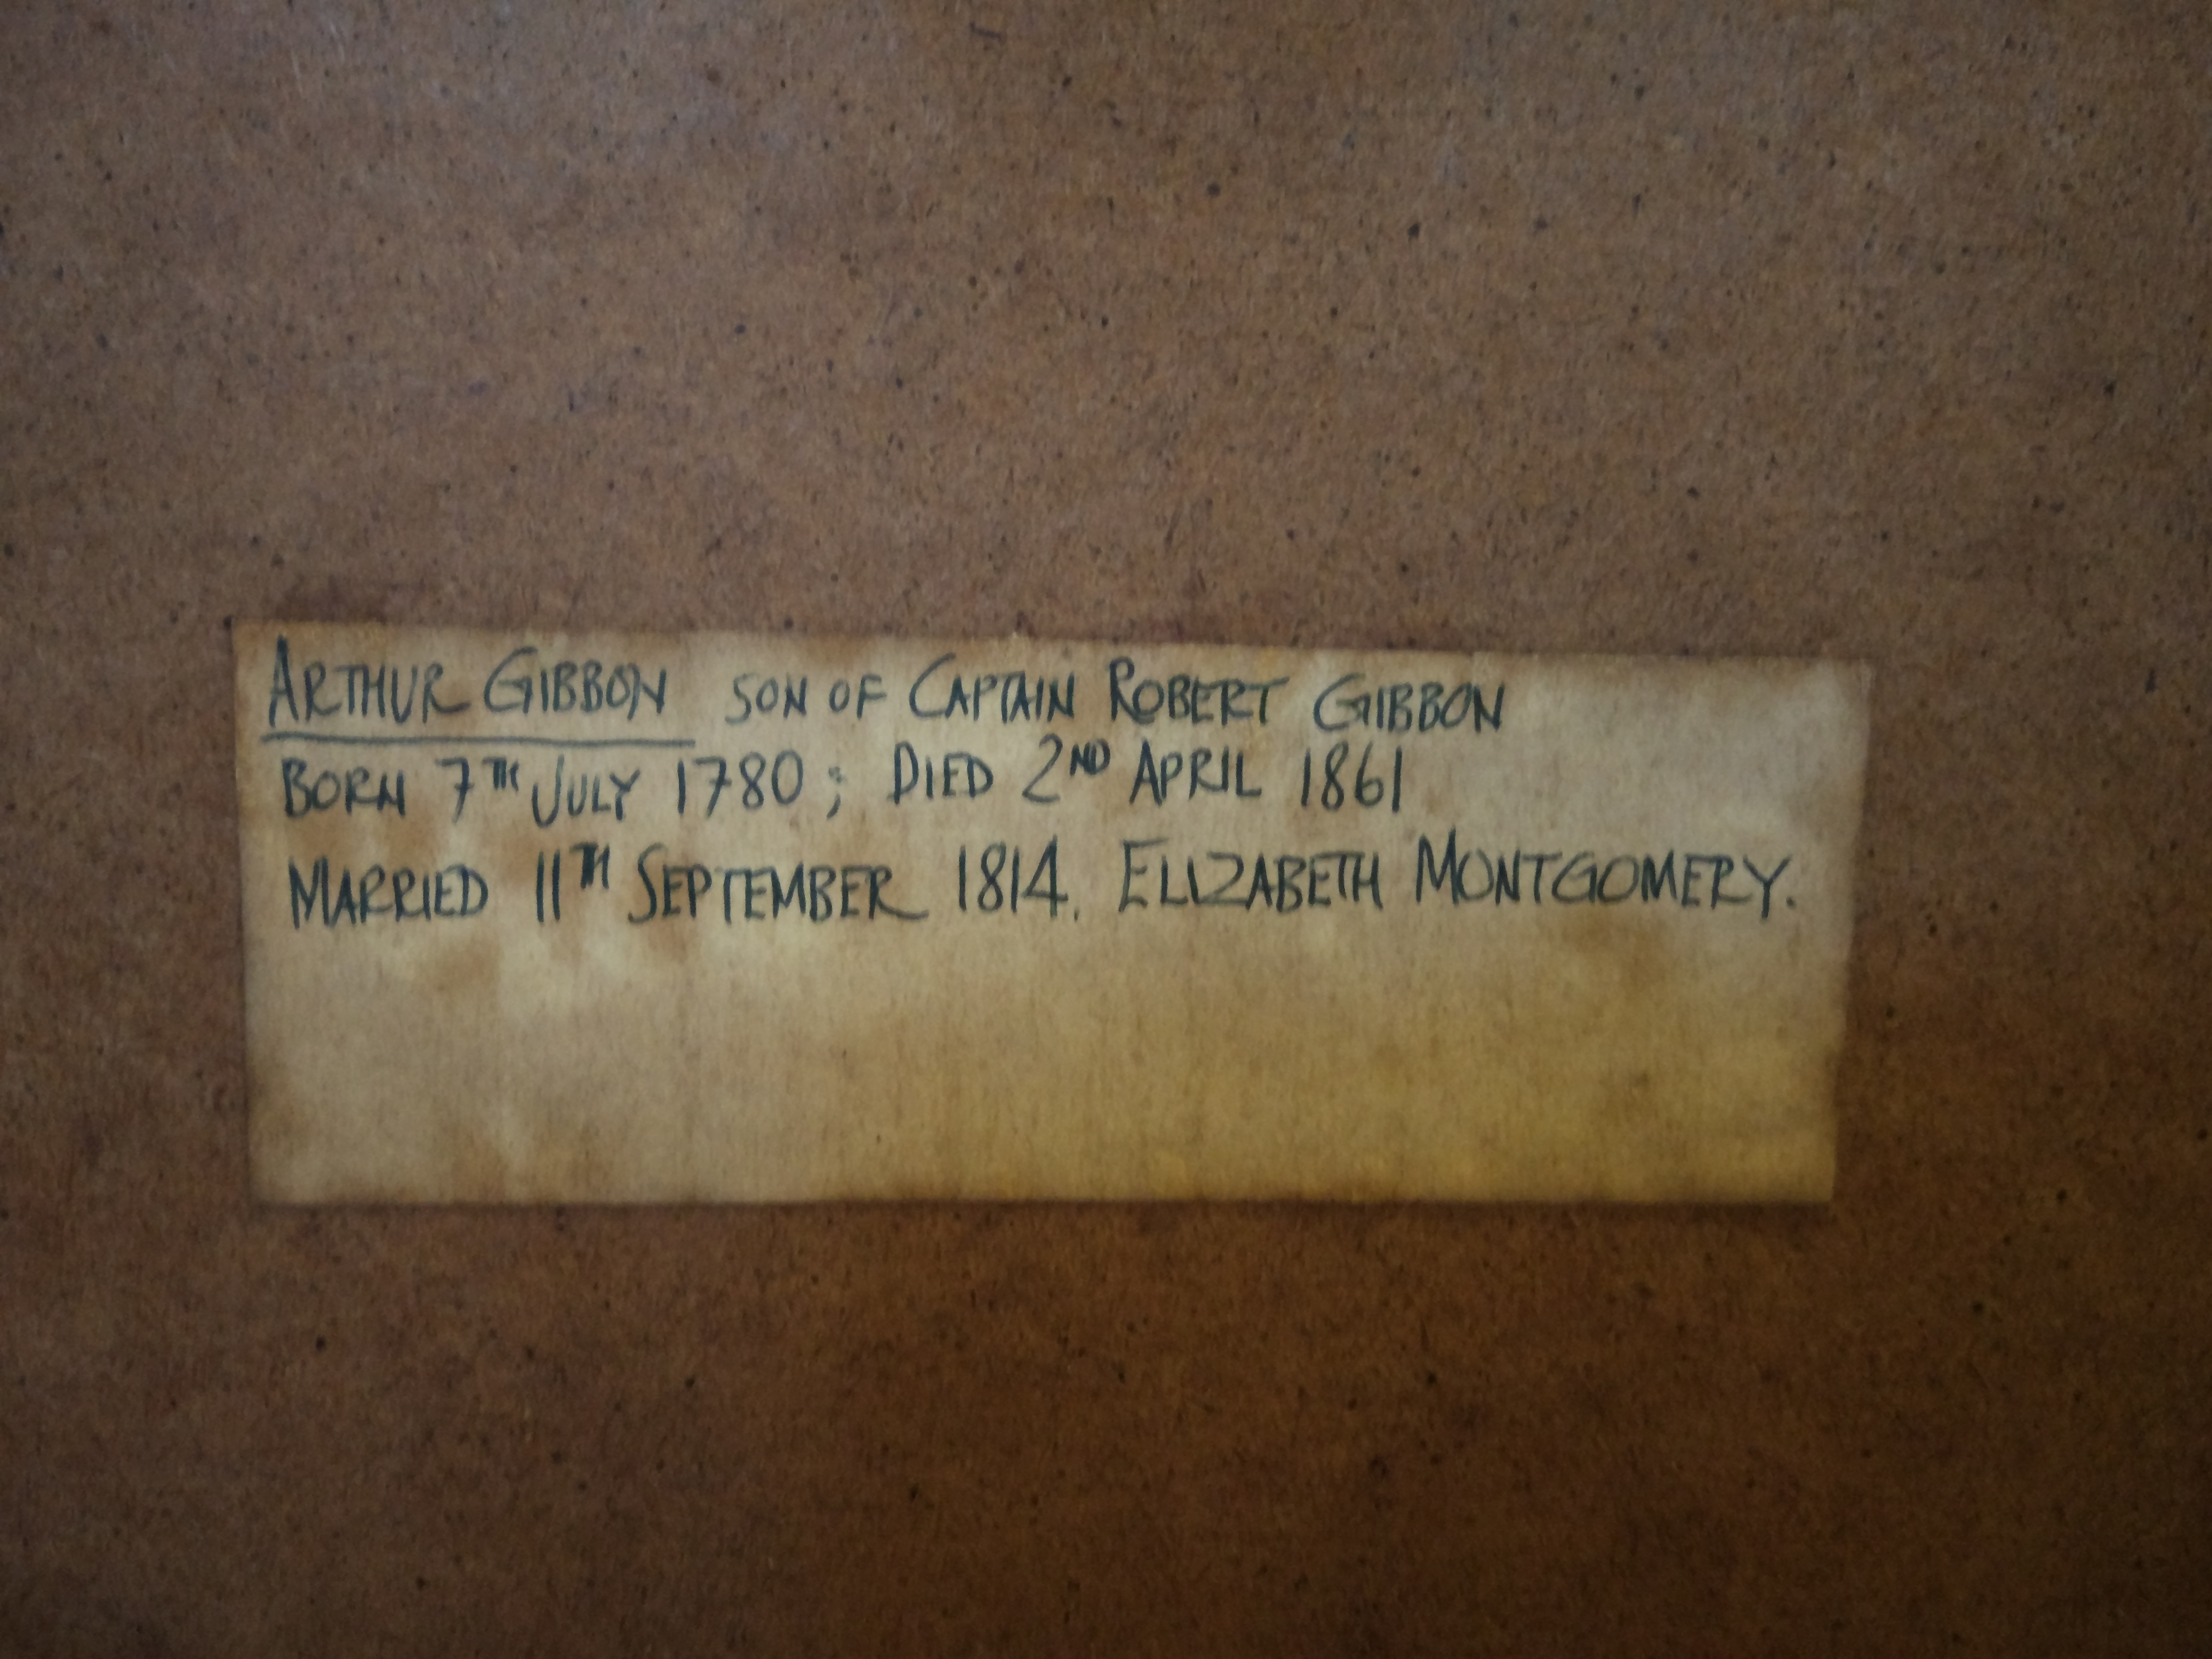 ARTHUR GIBBON SON OF CAPTAIN ROBERT GIBBON
BORN 7TH JULY 1780; DIED 2ND APRIL 1861
MARRIED 11TH SEPTEMBER 1814. ELIZABETH MONTGOMERY.